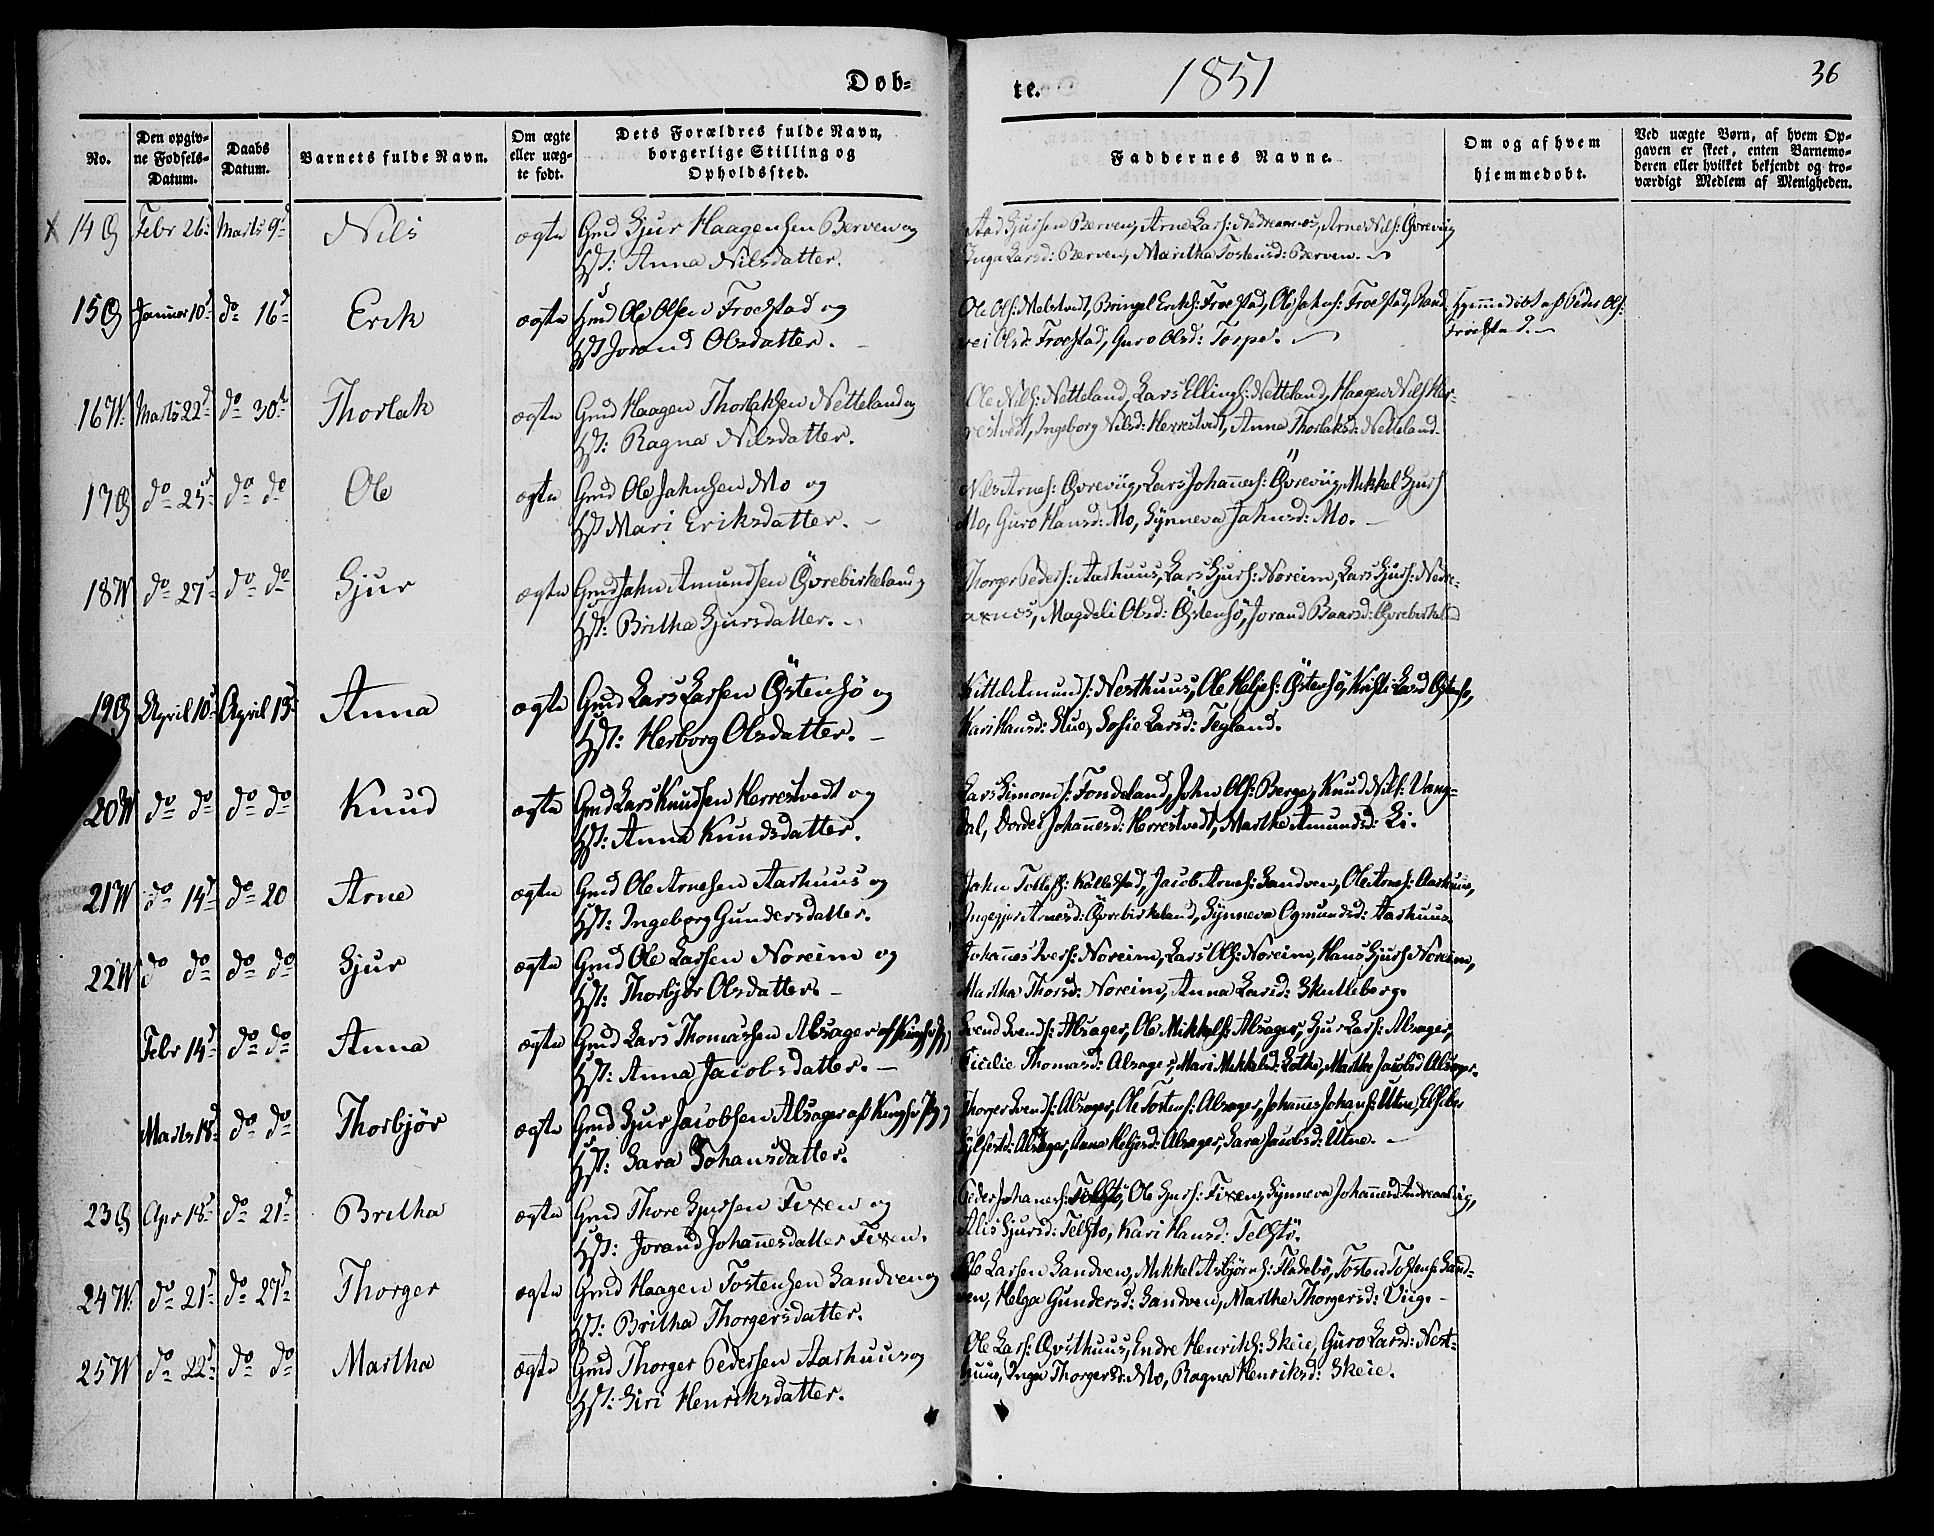 Døb-
te.
1851
36
No.
Den opgiv-
ne Fødsels-
Datum.
Daabs
Datum.
Barnets fulde Navn.
Om ægte
eller uæg-
te født.
Dets Forældres fulde Navn,
borgerlige Stilling og
Opholdssted.
Faddernes Navne.
Om og af hvem
hjemmedøbt.
Ved uægte Børn, af hvem Op-
gaven er skeet, enten Barnemo-
deren eller hvilket bekjendt og tro-
værdigt Medlem af Menigheden.
14 Febr 26 Marts 9 Nils ægte Gmd Sjur Haagensen Berven og
Hst: Anna Nilsdatter.
Sjursen Berven, Arne Lars: Nedreaxnes, Arne Nils: Øvreviig
Inga Larsd: Berven, Maritha Tostensd: Berven.
15 Januar 10 do 16 Erik ægte Hmd Ole Olsen Froestad og
Hst Jorand Olsdatter.
Ole Ols: Melstvedt, Bringel Eriks: Froestad, Ole Jahns: Froestad, Rand-
vei Olsd: Froestad, Guro Olsd: Torpe.
Hjemmedøbt af Peder Ols:
Froestad.
16 Marts 22 do 30 Thorlak ægte Gmd Haagen Thorlaksen Netteland og
Hst: Ragna Nilsdatter.
Ole Nils: Netteland, Lars Ellings: Netteland, Haagen Nils Her-
restvedt, Ingeborg Nilsd: Herrestvedt, Anna Thorlaksd: Netteland.
17 do 25 do do Ole ægte Gmd Ole Jahnsen Mo og
Hst Mari Eriksdatter.
Nils Arnes: Øvreviig, Lars Johannes: Øvreviig, Mikkel Sjurs
Mo, Guro Hansd: Mo, Synneva Jahnsd: Mo.
18 do 27 do do Sjur ægte Gmd Jahn Amundsen Øvrebirkeland og
Hst: Britha Sjursdatter.
Thorger Peders: Aarhuus, Lars Sjurs: Noreim, Lars Sjurs: Nedre-
axnes, Magdeli Olsd: Østensø, Jorand Baarsd: Øvrebirkeland
19 April 10 April 13 Anna ægte Gmd Lars Larsen Østensø og
Hst: Herborg Olsdatter.
Kittel Amunds: Nesthuus, Ole Heljes: Østensø, Kristi Larsd Østensø,
Kari Hansd: Stue, Sofie Larsd: Teyland.
20 do do do do Knud ægte Gmd Lars Knudsen Herrestvedt og
Hst: Anna Knudsdatter.
Lars Simons: Tondeland, John Ols: Berge, Knud Nils: Vang-
dal, Dordei Johannesd: Herrestvedt, Martha Amundsd: Li.
21 do 14 do 20 Arne ægte Gmd Ole Arnesen Aarhuus og
Hst: Ingeborg Gundersdatter.
Jahn Tollefs: Kollestad, Jacob Arnes: Sandven, Ole Arnes: Aarhuus,
Arnesd: Øvrebirkeland, Synneva Ogmundsd: Aarhuus.
22 do do do do Sjur ægte Gmd Ole Larsen Noreim og
Hst: Thorbjør Olsdatter.
Johannes Ivers: Noreim, Lars Ols: Noreim, Hans Sjurs Noreim,
Martha Thorsd: Noreim, Anna Larsd: Skutleberg.
Febr 14 do do Anna ægte Gmd Lars Thomassen Alsager af
Hst: Anna Jacobsdatter.
Svend Svends: Alsager, Ole Mikkels: Alsager, Sjur Lars: Alsager,
Cicilie Thomasd: Alsager, Mari Mikkelsd: Lothe, Martha Jacobsd Alsager.
Marts 18 do do Thorbjør ægte Gmd Sjur Jacobsen Alsager af
Hst: Sara Johansdatter.
Thorger Svends: Alsager, Ole Tostens: Alsager, Johannes Johans: Utne,
Alsager, Anna Heljesd: Alsager, Sara Jacobsd: Utne.
23 Apr 18 do 21 Britha ægte Gmd Thore Sjursen Fixen og
Hst: Jorand Johannesdatter Fixen.
Peder Johannes: Telstø, Ole Sjurs: Fixen, Synneva Johannesd:
Alis Sjursd: Telstø, Kari Hansd: Telstø.
24 do 21 do 27 Thorger ægte Gmd Haagen Tostensen Sandven og
Hst: Britha Thorgersdatter.
Ole Larsen Sandven, Mikkel Asbjørns: Fladebø, Tosten Tostens: Sand-
ven, Helga Gundersd: Sandven, Martha Thorgersd: Viig.
25 do 22 do do Martha ægte Gmd Thorger Pedersen Aarhuus og
Hst: Siri Henriksdatter.
Ole Lars: Østhuus, Endre Henriks: Skeie, Guro Larsd: Nest-
huus, Inga Thorgersd: Mo, Ragna Henriksd: Skeie.